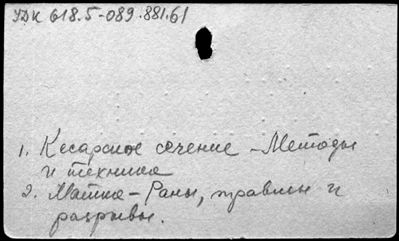 УДК 618.5-089.881.61
1. Кесарское сечение - Методы
и техника
2. Матка - Раны, травмы и
разрывы.